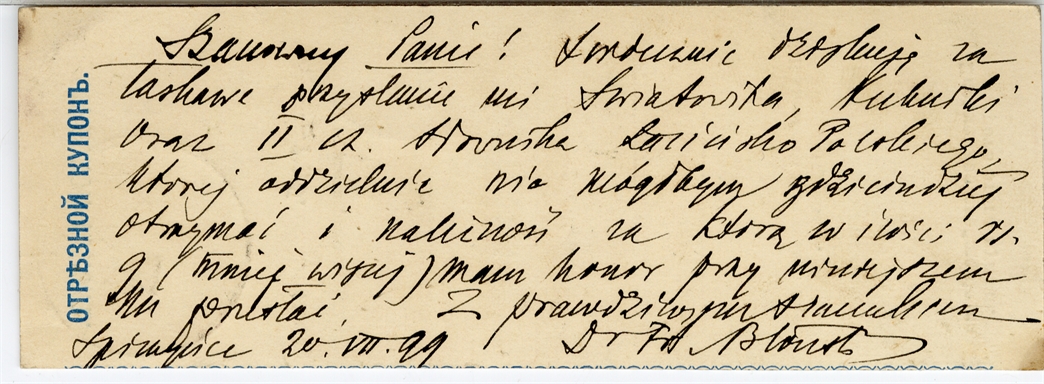 ОТРѢЗНОЙ КУПОНЪ.
Szanowny Panie! Serdecznie dziękuję za
łaskawe przysłanie mi Światowita,
oraz II cz. Słownika Łacińsko Polskiego,
której oddzielnie nie mógłbym gdzieindziej
otrzymać i należność za którą w ilości rs.
9 (mniej więcej) mam honor przy niniejszem
Mu przesłać. Z prawdziwym szacunkiem
20.VII.99 Dr Fr